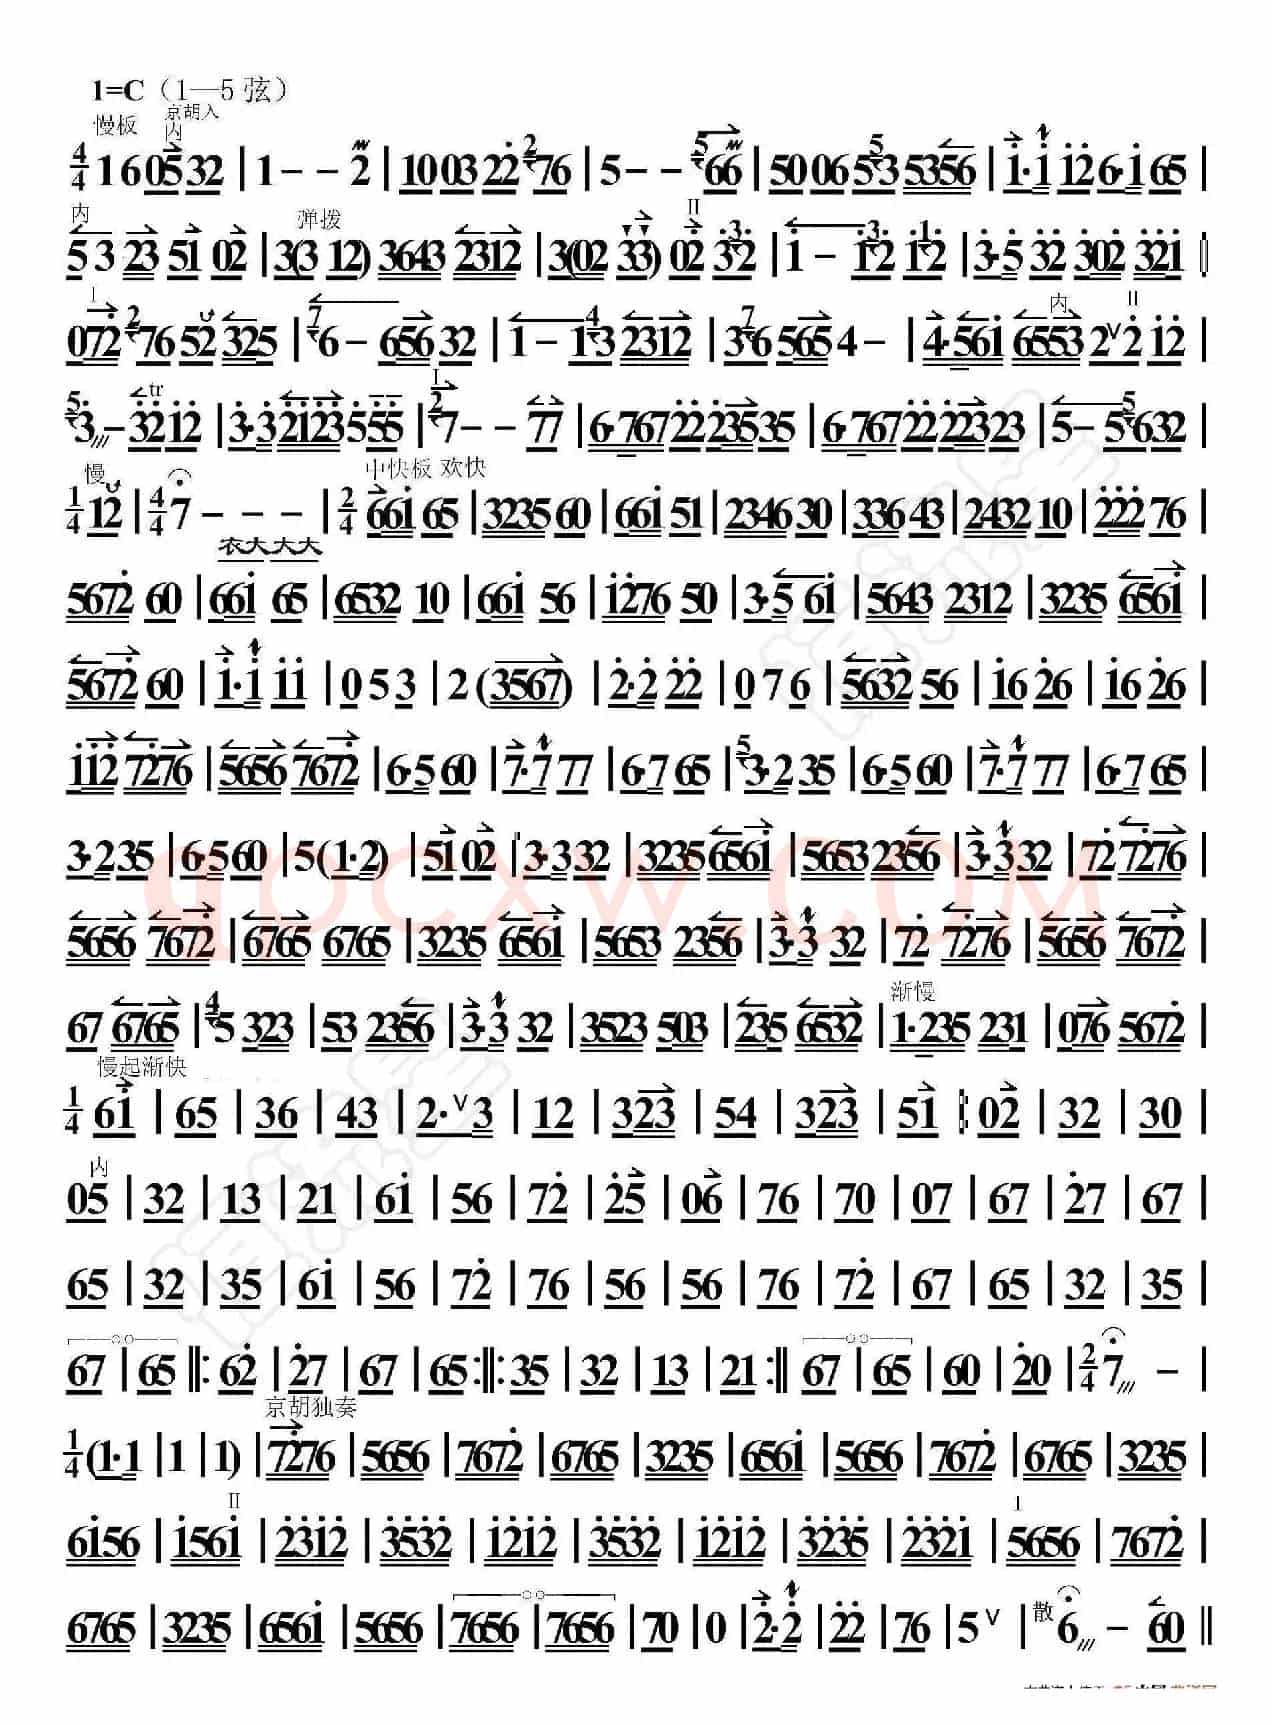 1=C（1—5弦）
慢板 京胡入
内
4/4 1 6 05 32 | 1 - - 2 | 10 03 22 2 76 | 5 - - 5 66 | 50 06 5 53 5356 | 1·1 12 6·1 65 |
内 弹拨 II
5 3 23 51 02 | 3(3 12) 3643 2312 | 3(02 33) 02 3 32 | 1 - 3 12 1 12 | 3·5 32 302 321 |
I 内 II
072 2 76 52 325 | 7 6 - 656 32 | 1 - 1 4 3 2312 | 3 7 6 565 4 - | 4·561 6553 2 V 2 12 |
tr I
5 3 - 32 12 | 3·3 2123 555 | 2 7 - - 77 | 6·767 22 23535 | 6·767 222 2323 | 5 - 5 5 632 |
慢 中快板 欢快
1/4 12 | 4/4 7 - - - | 2/4 661 65 | 3235 60 | 661 51 | 2346 30 | 336 43 | 2432 10 | 222 76 |
衣大大大
5672 60 | 661 65 | 6532 10 | 661 56 | 1276 50 | 3·5 61 | 5643 2312 | 3235 6561 |
5672 60 | 1·1 11 | 0 5 3 | 2 (3567) | 2·2 22 | 0 7 6 | 5632 56 | 16 26 | 16 26 |
112 7276 | 5656 7672 | 6·5 60 | 7·7 77 | 6·7 65 | 5 3·2 35 | 6·5 60 | 7·7 77 | 6·7 65 |
3·2 35 | 6·5 60 | 5 (1·2) | 51 02 | 3·3 32 | 3235 6561 | 5653 2356 | 3·3 32 | 72 7276 |
5656 7672 | 6765 6765 | 3235 6561 | 5653 2356 | 3·3 32 | 72 7276 | 5656 7672 |
渐慢
67 6765 | 4 5 323 | 53 2356 | 3·3 32 | 3523 503 | 235 6532 | 1·235 231 | 076 5672 |
慢起渐快
1/4 61 | 65 | 36 | 43 | 2· V 3 | 12 | 323 | 54 | 323 | 51 : 02 | 32 | 30 |
内
05 | 32 | 13 | 21 | 61 | 56 | 72 | 25 | 06 | 76 | 70 | 07 | 67 | 27 | 67 |
65 | 32 | 35 | 61 | 56 | 72 | 76 | 56 | 56 | 76 | 72 | 67 | 65 | 32 | 35 |
67 | 65 ‖: 62 | 27 | 67 | 65 :‖: 35 | 32 | 13 | 21 :‖ 67 | 65 | 60 | 20 | 2/4 7 - |
京胡独奏
1/4 (1·1 | 1 | 1) | 7276 | 5656 | 7672 | 6765 | 3235 | 6561 | 5656 | 7672 | 6765 | 3235 |
II I
6156 | 1561 | 2312 | 3532 | 1212 | 3532 | 1212 | 3235 | 2321 | 5656 | 7672 |
6765 | 3235 | 6561 | 5656 | 7656 | 7656 | 70 | 0 | 2·2 | 22 | 76 | 5 V | 散 6 - 60 ‖
qocxw.com